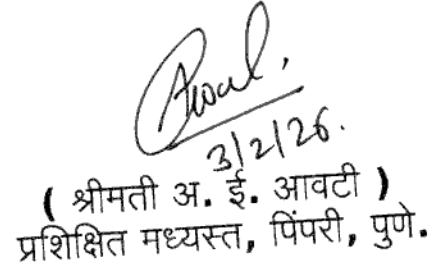 3/2/26.
( श्रीमती अ. ई. आवटी )
प्रशिक्षित मध्यस्त, पिंपरी, पुणे.